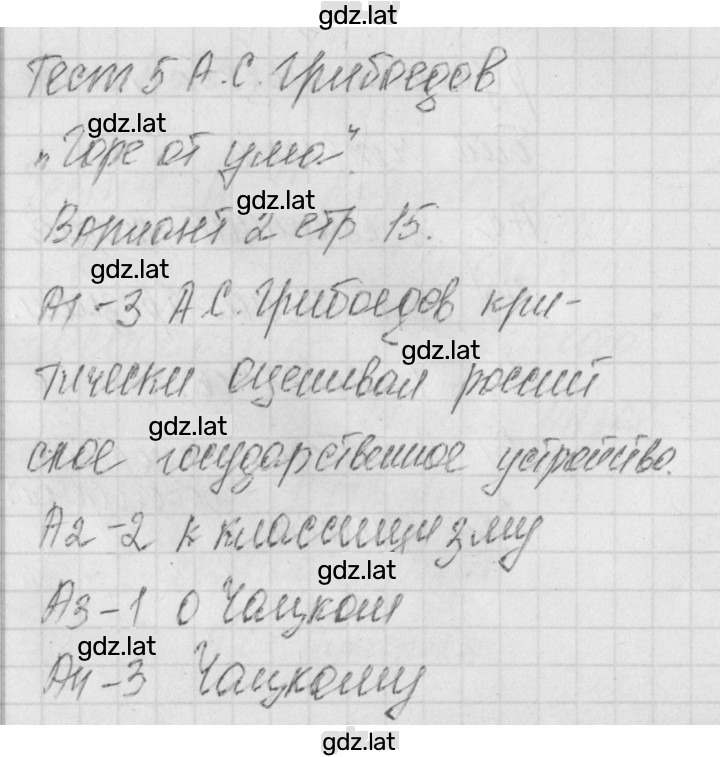 gdz.lat
Тест 5 А.С. Грибоедов
gdz.lat
"Горе от ума".
gdz.lat
Вариант 2 стр 15.
gdz.lat
А1-3 А.С. Грибоедов кри-
gdz.lat
тически оценивал россий
gdz.lat
ское государственное устройство.
А2-2 к классицизму
gdz.lat
А3-1 о Чацком
gdz.lat
А4-3 Чацкому
gdz.lat